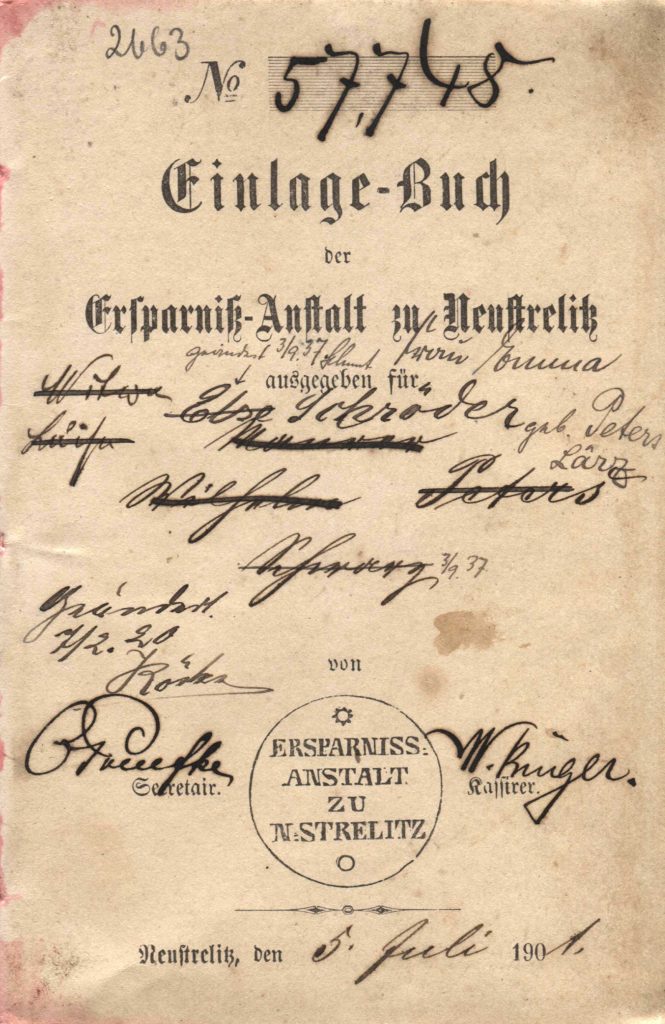 2663
No 57,748.
Einlage-Buch
der
Ersparniß-Anstalt zu Neustrelitz
geändert 3/9.37. Frau Emma
ausgegeben für
Witwe Else Schröder geb. Peters
Luise Maurer Lärz
Wilhelm Peters
Schwarz 3/9.37
Geändert.
7/2.20
von
ERSPARNISS-
ANSTALT
ZU
N-STRELITZ
W. Krüger.
Secretair. Kassirer.
Neustrelitz, den 5. Juli 1901.